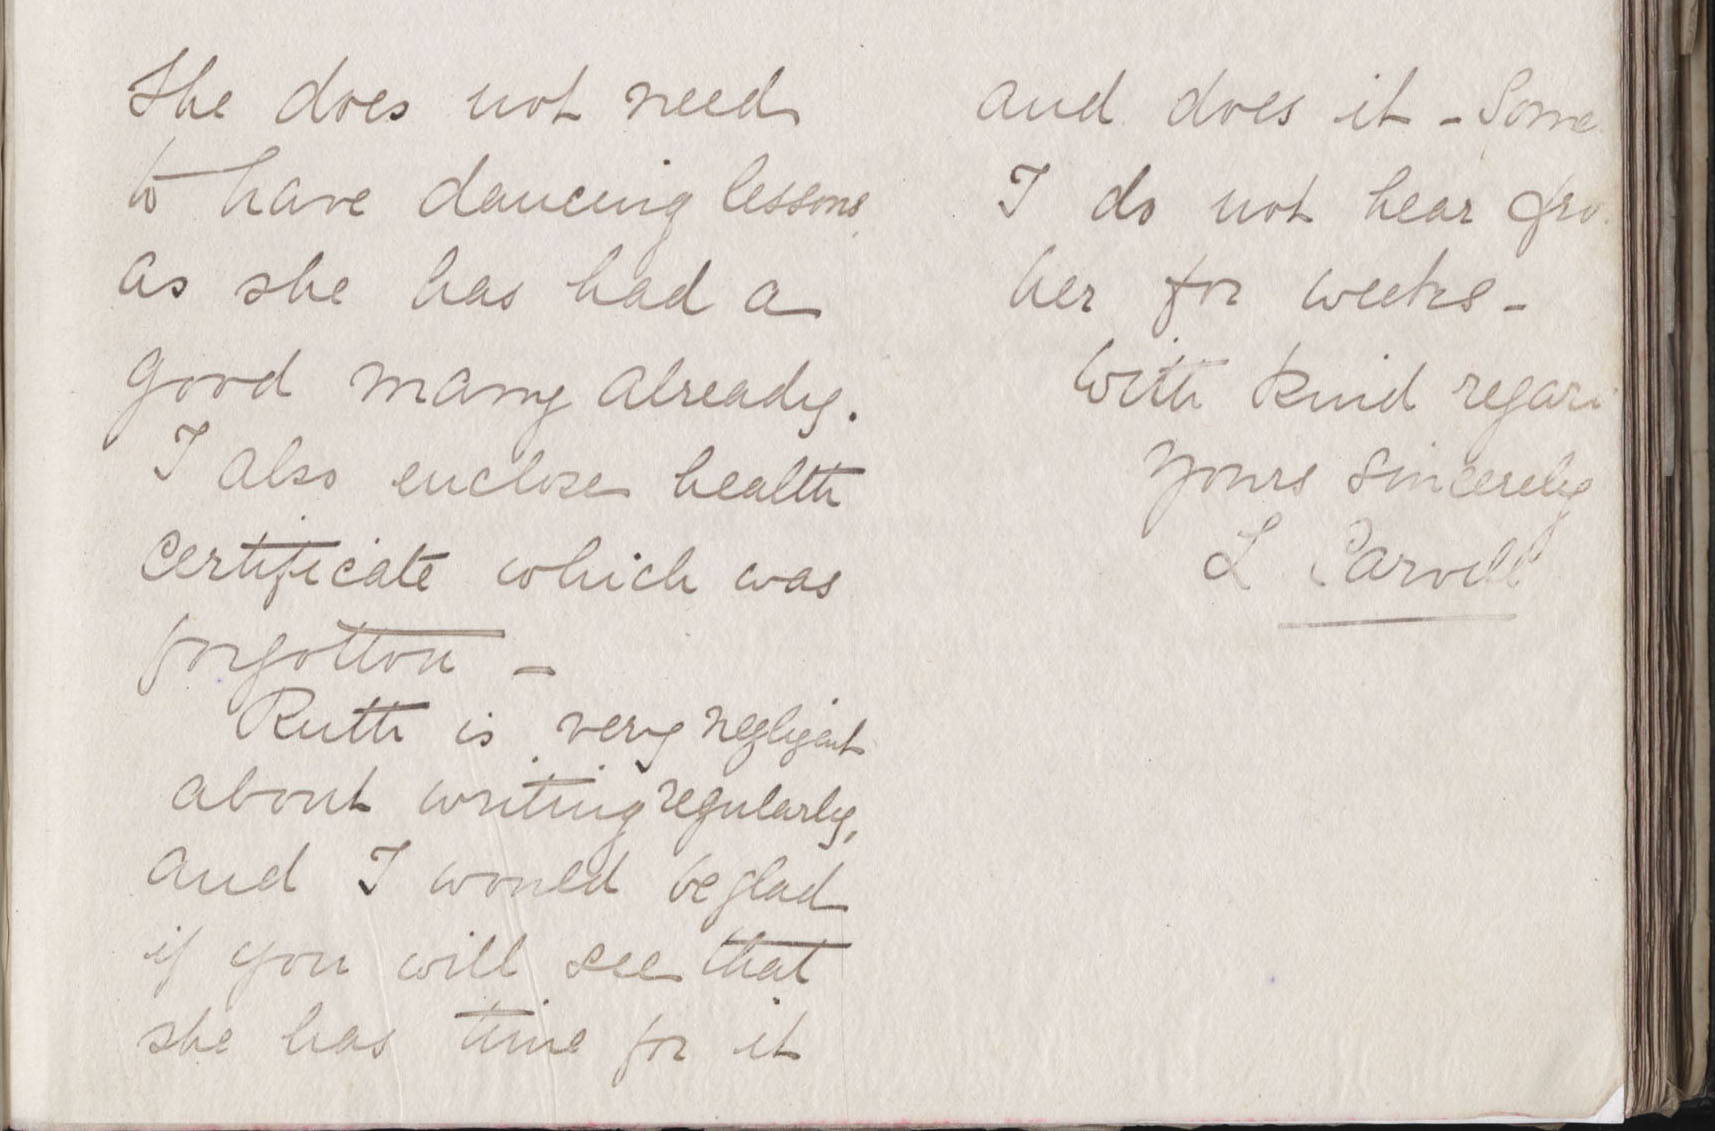 She does not need
to have dancing lessons
as she has had a
good many already.
I also enclose health
certificate which was
forgotton -
Ruth is very negligent
about writing regularly,
and I would be glad
if you will see that
she has time for it
and does it - Some
I do not hear fro
her for weeks -
With kind regar
Yours sincerely
L Carvell